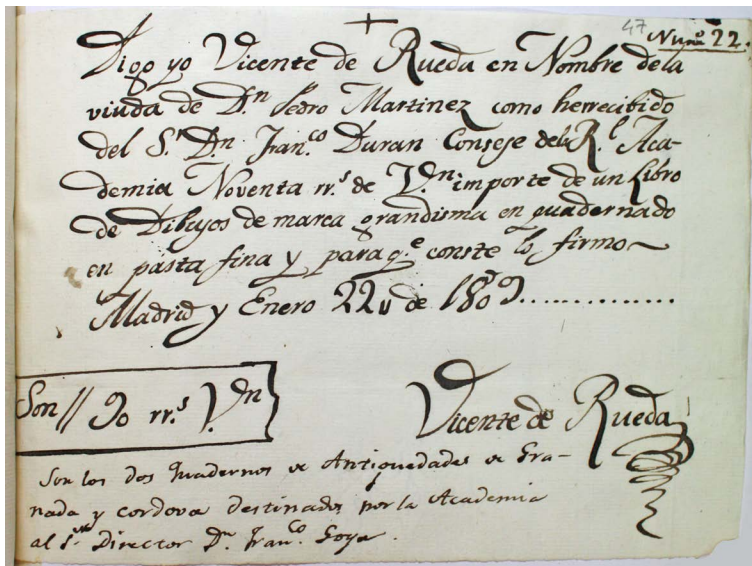 47 Num.º 22.
Digo yo Vicente de Rueda en Nombre de la
viuda de D.ⁿ Pedro Martinez como herrecibido
del S.ʳ D.ⁿ Fran.ᶜᵒ Duran Consege de la R.ˡ Aca-
demia Noventa rr.ˢ de V.ᵈⁿ importe de un Libro
de Dibujos de marca grandisma en quadernado
en pasta fina y para q.ᵉ conste lo firmo
Madrid y Enero 22 de 1809..............
Son // 90 rr.ˢ V.ᵈⁿ
Vicente de Rueda
Son los dos quadernos de Antiguedades de Gra-
nada y cordova destinados por la Academia
al S.ᵒʳ Director D.ⁿ Fran.ᶜᵒ Goya.